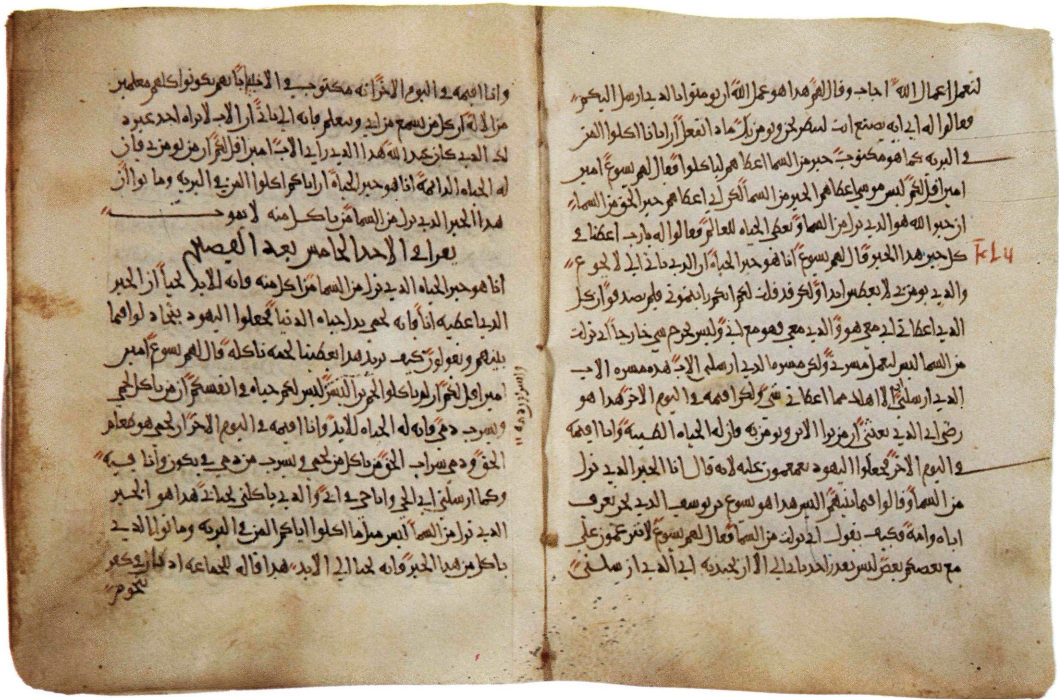 لنعمل اعمال الله اجاب وقال لهم هدا هو عمل الله ان تومنوا بالدي ارسل اليكم
فقالوا له اي ايه تصنع انت لننظر نحن ونومن بك مادا تفعل اباونا اكلوا المن
في البريه كما هو مكتوب خبز من السما اعطاهم لياكلوا فقال لهم يسوع امين
امين اقل لكم ليس موسى اعطاهم الخبز من السما لكن ابي اعطاهم خبز الحق من السما
ان خبز الله هو الدي نزل من السما ويعطي الحياه للعالم فقالوا له يا رب اعطنا في
كل حين هدا الخبز قال لهم يسوع انا هو خبز الحياه ان الدي ياتي الي لا يجوع
والدي يومن بي لا يعطش ابدا ولكن قد قلت لكم انكم رايتموني فلم تصدقوا ان كل
الدي اعطاني ابي مع هو والدي معي فهو مع ابي وليس يخرج شي خارجا اني نزلت
من السما ليس لنعمل مسرتي ولكن مسره الدي ارسلني الاب هده مسره الاب
الدي ارسلني الا اهلك مما اعطاني شي ولكن اقيمه في اليوم الاخر هدا هو
رضى ابي الدي بعثني ان من يرا الابن ويومن به فان له الحياه الطيبه وانا اقيمه
في اليوم الاخر فجعلوا اليهود يغمغمون عليه لانه قال انا الخبز الدي نزل
من السما وقالوا فيما بينهم اليس هدا هو يسوع بن يوسف الدي نحن نعرف
اباه وامه وكيف يقول اني نزلت من السما فقال لهم يسوع لا تغمغمون على
مع بعضكم بعض ليس يقدر احد ياتي الي الا ان يجتدبه ابي الدي ارسلني
وانا اقيمه في اليوم الاخر انه مكتوب في الانبيا بانهم يكونوا كلهم معلمين
من الاله ان كل من يسمع من ابي ويتعلم فانه الي ياتي ان الاب لا يراه احد غير د
لك الدي كان عند الله هدا الدي راى الاب امين اقل لكم ان من يومن بي فان
له الحياه الدائمه انا هو خبز الحياه ان اباكم اكلوا المن في البريه وماتوا ان
هدا الخبز الدي نزل من السما من ياكل منه لا يموت
يقرا في الاحد الخامس بعد الفصح
انا هو خبز الحياه الدي نزل من السما من اكل منه فانه للابد يحيا ان الخبز
الدي اعطيه انا فانه لحمي بدل حياه الدنيا فجعلوا اليهود يتجادلوا فيما
بينهم ويقولون كيف يريد هدا يعطينا لحمه ناكله قال لهم يسوع امين
امين اقل لكم ان لم تاكلوا لحم بن البشر ليس لكم حياه في انفسكم ان من ياكل لحمي
ويشرب دمي فانه له الحياه للابد وانا اقيمه في اليوم الاخر ان لحمي هو طعام
الحق ودمي شراب الحق من ياكل من لحمي ويشرب من دمي في يكون وانا فيه
وكما ارسلني ابي الحي وانا حي في ابي والدي ياكلني يحيا بي هدا هو الخبز
الدي نزل من السما ليس مثل ما اكلوا اباكم المن في البريه وماتوا الدي
ياكل من هدا الخبز فانه يحيا الى الابد هدا قاله للجماعه اد كان في كفر
نحوم